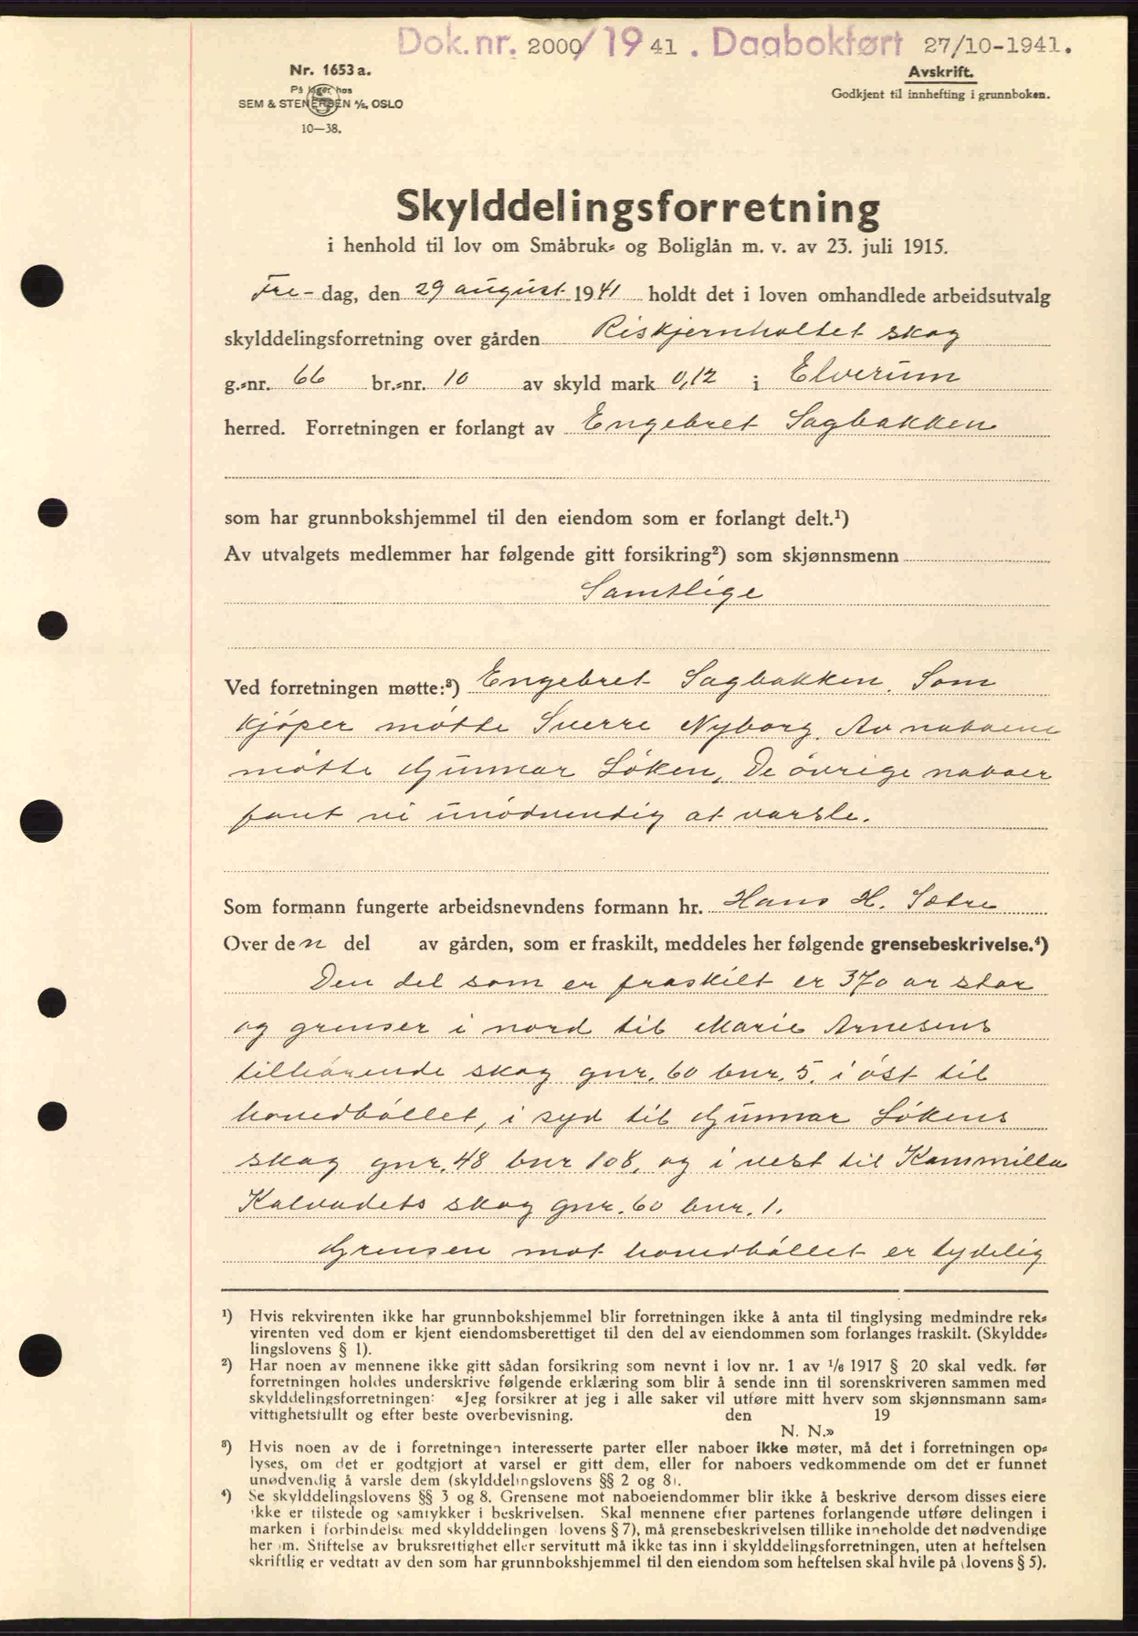 Dok. nr. 2000/1941. Dagbokført 27/10-1941.
Nr. 1653 a.
På lager hos
SEM & STENERSEN A/S, OSLO
10—38.
Avskrift.
Godkjent til innhefting i grunnboken.
Skylddelingsforretning
i henhold til lov om Småbruk- og Boliglån m. v. av 23. juli 1915.
Fre-dag, den 29 august 1941 holdt det i loven omhandlede arbeidsutvalg
skylddelingsforretning over gården Riskjernholtet skog
g.-nr. 66 br.-nr. 10 av skyld mark 0,12 i Elverum
herred. Forretningen er forlangt av Engebret Sagbakken
som har grunnbokshjemmel til den eiendom som er forlangt delt.¹)
Av utvalgets medlemmer har følgende gitt forsikring²) som skjønnsmenn
Samtlige
Ved forretningen møtte:³) Engebret Sagbakken. Som
kjøper møtte Sverre Nyborg. Av naboene
møtte Gunnar Løken, De øvrige naboer
fant vi unødvendig at varsle.
Som formann fungerte arbeidsnevndens formann hr. Hans H. Sætre
Over den del av gården, som er fraskilt, meddeles her følgende grensebeskrivelse.⁴)
Den del som er fraskilt er 370 ar stor
og grenser i nord til Marie Arnesens
tilhørende skog gnr. 60 bnr. 5. i øst til
hovedbøllet, i syd til Gunnar Løkens
skog gnr. 48 bnr 108, og i vest til Kammilla
Kalvadets skog gnr. 60 bnr. 1.
Grensen mot hovedbøllet er tydelig
¹) Hvis rekvirenten ikke har grunnbokshjemmel blir forretningen ikke å anta til tinglysing medmindre rek-
virenten ved dom er kjent eiendomsberettiget til den del av eiendommen som forlanges fraskilt. (Skyldde-
lingslovens § 1).
²) Har noen av mennene ikke gitt sådan forsikring som nevnt i lov nr. 1 av 1/6 1917 § 20 skal vedk. før
forretningen holdes underskrive følgende erklæring som blir å sende inn til sorenskriveren sammen med
skylddelingsforretningen: «Jeg forsikrer at jeg i alle saker vil utføre mitt hverv som skjønnsmann sam-
vittighetsfullt og efter beste overbevisning. den 19
N. N.»
³) Hvis noen av de i forretningen interesserte parter eller naboer ikke møter, må det i forretningen op-
lyses, om det er godtgjort at varsel er gitt dem, eller for naboers vedkommende om det er funnet
unødvendig å varsle dem (skylddelingslovens §§ 2 og 8).
⁴) Se skylddelingslovens §§ 3 og 8. Grensene mot naboeiendommer blir ikke å beskrive dersom disses eiere
ikke er tilstede og samtykker i beskrivelsen. Skal mennene efter partenes forlangende utføre delingen i
marken i forbindelse med skylddelingen (lovens § 7), må grensebeskrivelsen tillike inneholde det nødvendige
her om. Stiftelse av bruksrettighet eller servitutt må ikke tas inn i skylddelingsforretningen, uten at heftelsen
skriftlig er vedtatt av den som har grunnbokshjemmel til den eiendom som heftelsen skal hvile på (lovens § 5).